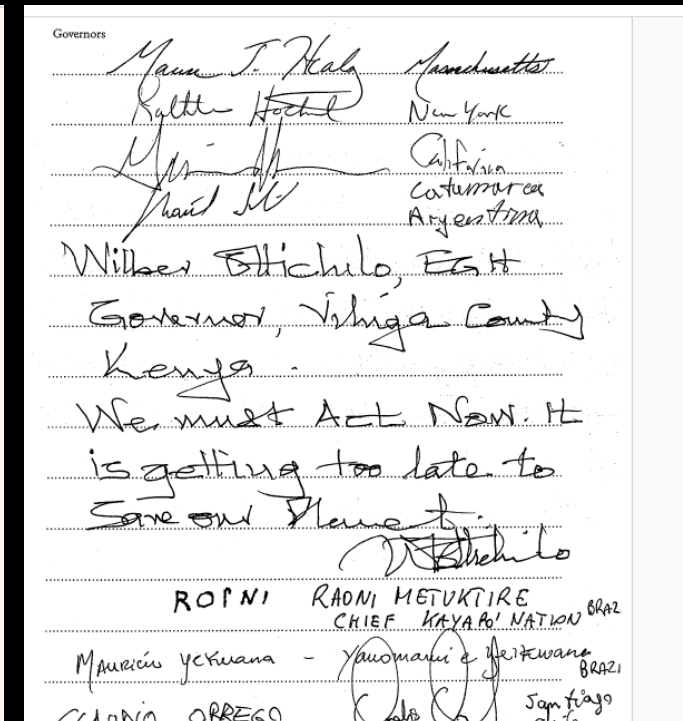 Governors
Maura T. Healy Massachusetts
Kathleen Hochul New York
California
Catamarca
Argentina
Wilber Ottichilo, EGH
Governor, Vihiga County
Kenya.
We must Act Now. It
is getting too late to
Save our Planet.
ROPNI RAONI METUKTIRE
CHIEF KAYAPO' NATION BRAZ
MAURICIO YEKUANA - Yanomami e Yeikwana
BRAZI
CLAUDIO ORREGO Santiago